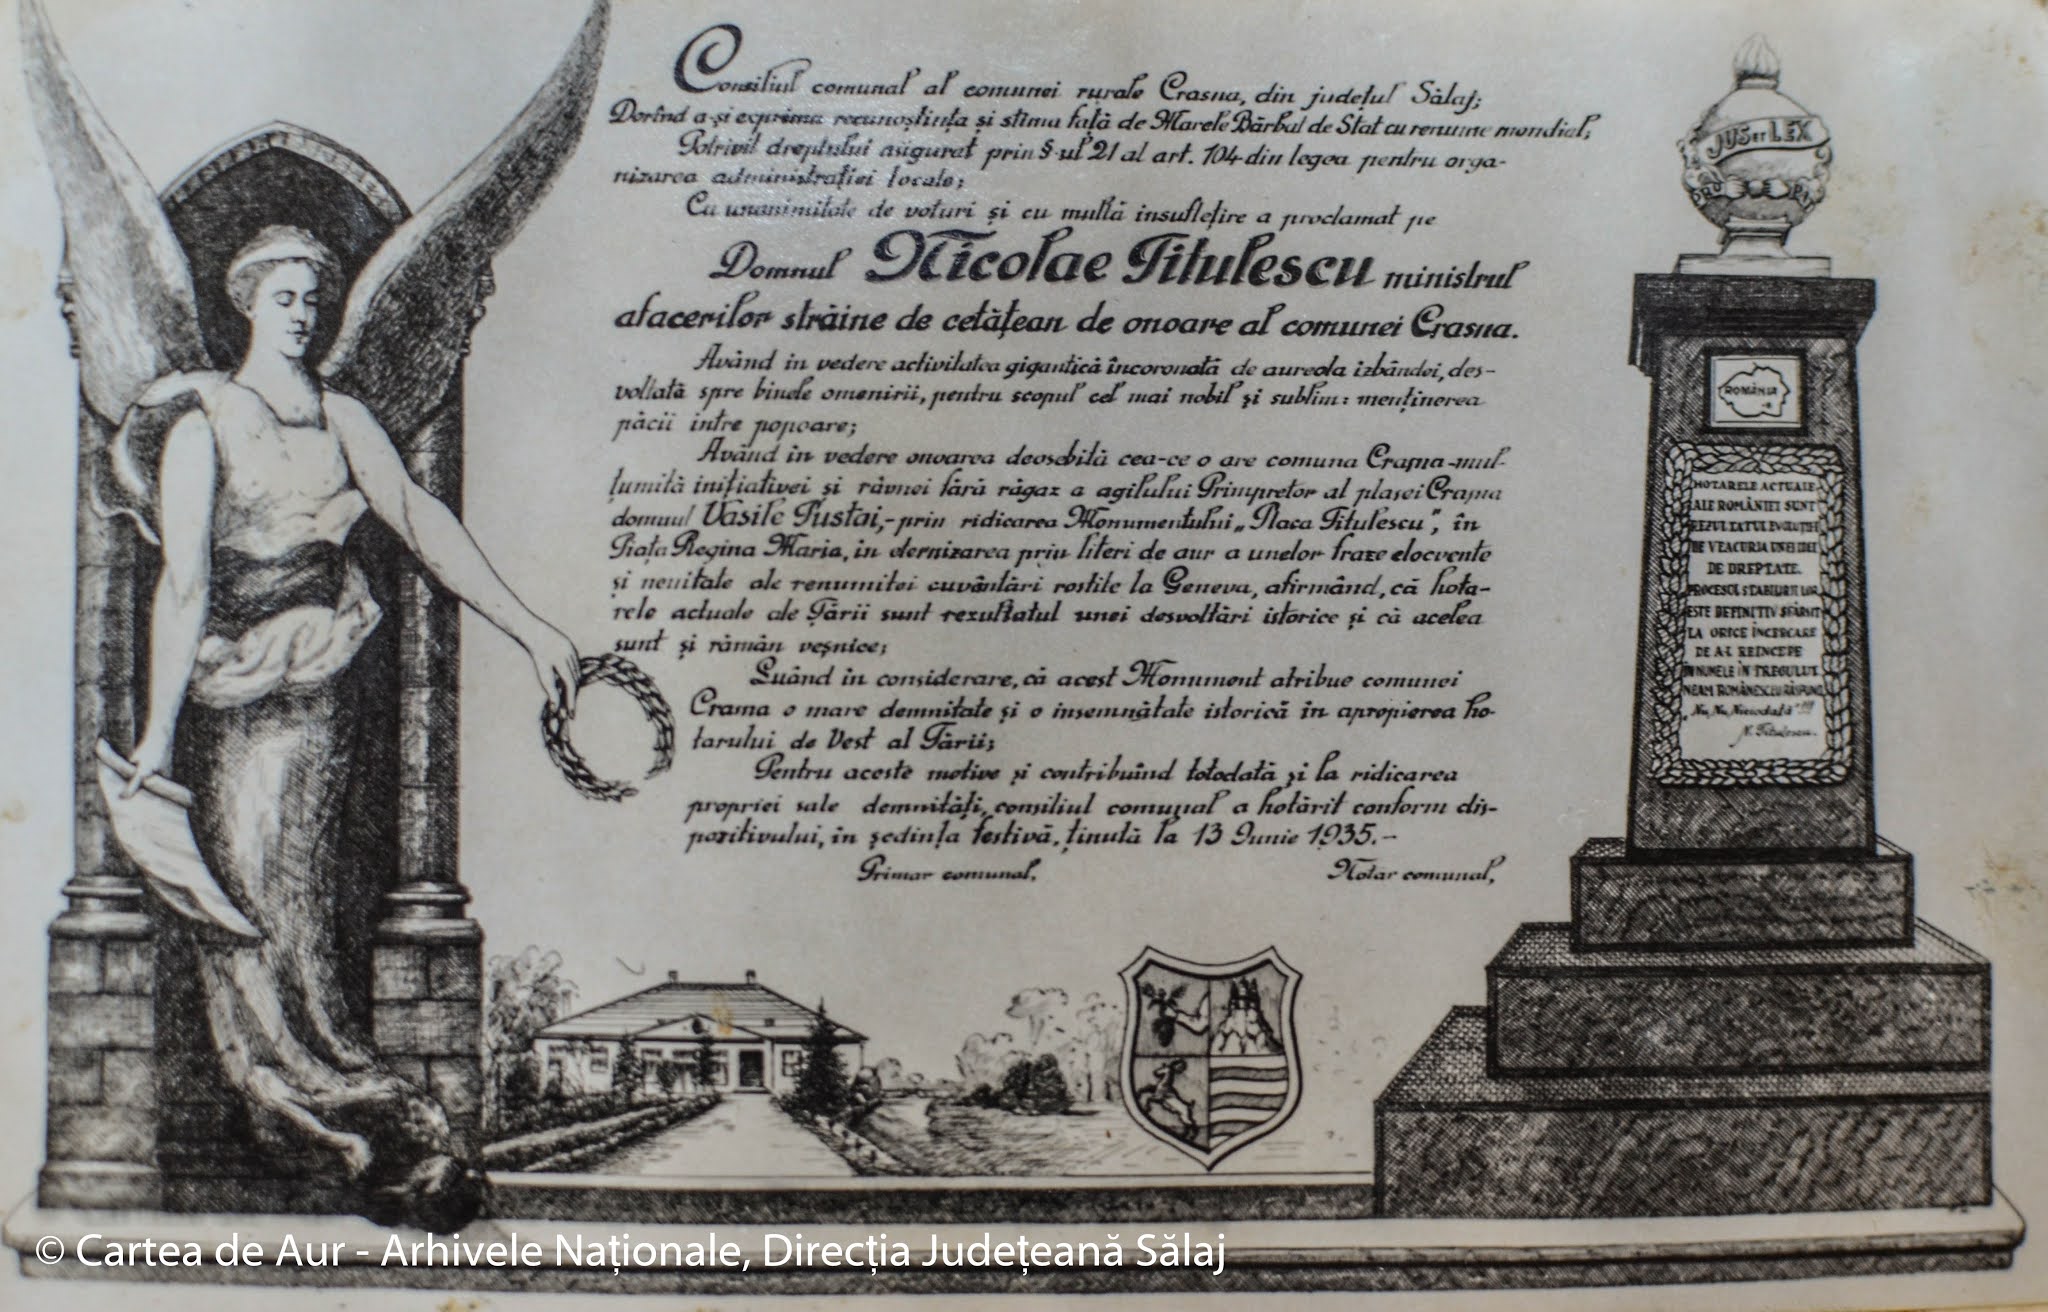 Consiliul comunal al comunei rurale Crasna, din județul Sălaj;
Dorind a-și exprima recunoștința și stima față de Marele Bărbat de Stat cu renume mondial;
Potrivit dreptului asigurat prin §-ul 21 al art. 104 din legea pentru orga-
nizarea administrației locale;
Cu unanimitate de voturi și cu multă insuflețire a proclamat pe
Domnul Nicolae Titulescu ministrul
afacerilor străine de cetățean de onoare al comunei Crasna.
Având in vedere activitatea gigantică încoronată de aureola izbândei, des-
voltată spre binele omenirii, pentru scopul cel mai nobil și sublim: menținerea
păcii intre popoare;
Având în vedere onoarea deosebită cea-ce o are comuna Crasna mul-
țumită inițiativei și râvnei fără răgaz a agilului Primpretor al plasei Crasna
domnul Vasile Pustai,- prin ridicarea Monumentului „Placa Titulescu", în
Piața Regina Maria, în eternizarea prin literi de aur a unelor fraze elocvente
și neuitate ale renumitei cuvântări rostite la Geneva, afirmând, că hota-
rele actuale ale Țării sunt rezultatul unei desvoltări istorice și că acelea
sunt și rămân veșnice;
Luând în considerare, că acest Monument atribue comunei
Crasna o mare demnitate și o însemnătate istorică în apropierea ho-
tarului de Vest al Țării;
Pentru aceste motive și contribuind totodată și la ridicarea
propriei sale demnități, consiliul comunal a hotărit conform dis-
pozitivului, în ședința festivă, ținută la 13 Iunie 1935.-
Primar comunal,
Notar comunal,
JUS ET LEX
PRO PAT
ROMÂNIA
HOTARELE ACTUALE
ALE ROMÂNIEI SUNT
REZULTATUL EVOLUȚIEI
DE VEACURI A UNEI IDEI
DE DREPTATE.
PROCESUL STABILIRII LOR
ESTE DEFINITIV SFÂRȘIT
LA ORICE ÎNCERCARE
DE A-L REINCEPE
ÎN NUMELE ÎNTREGULUI
NEAM ROMÂNESC EU RĂSPUND
„Nu, Nu, Niciodată" !!!
N. Titulescu.
© Cartea de Aur - Arhivele Naționale, Direcția Județeană Sălaj